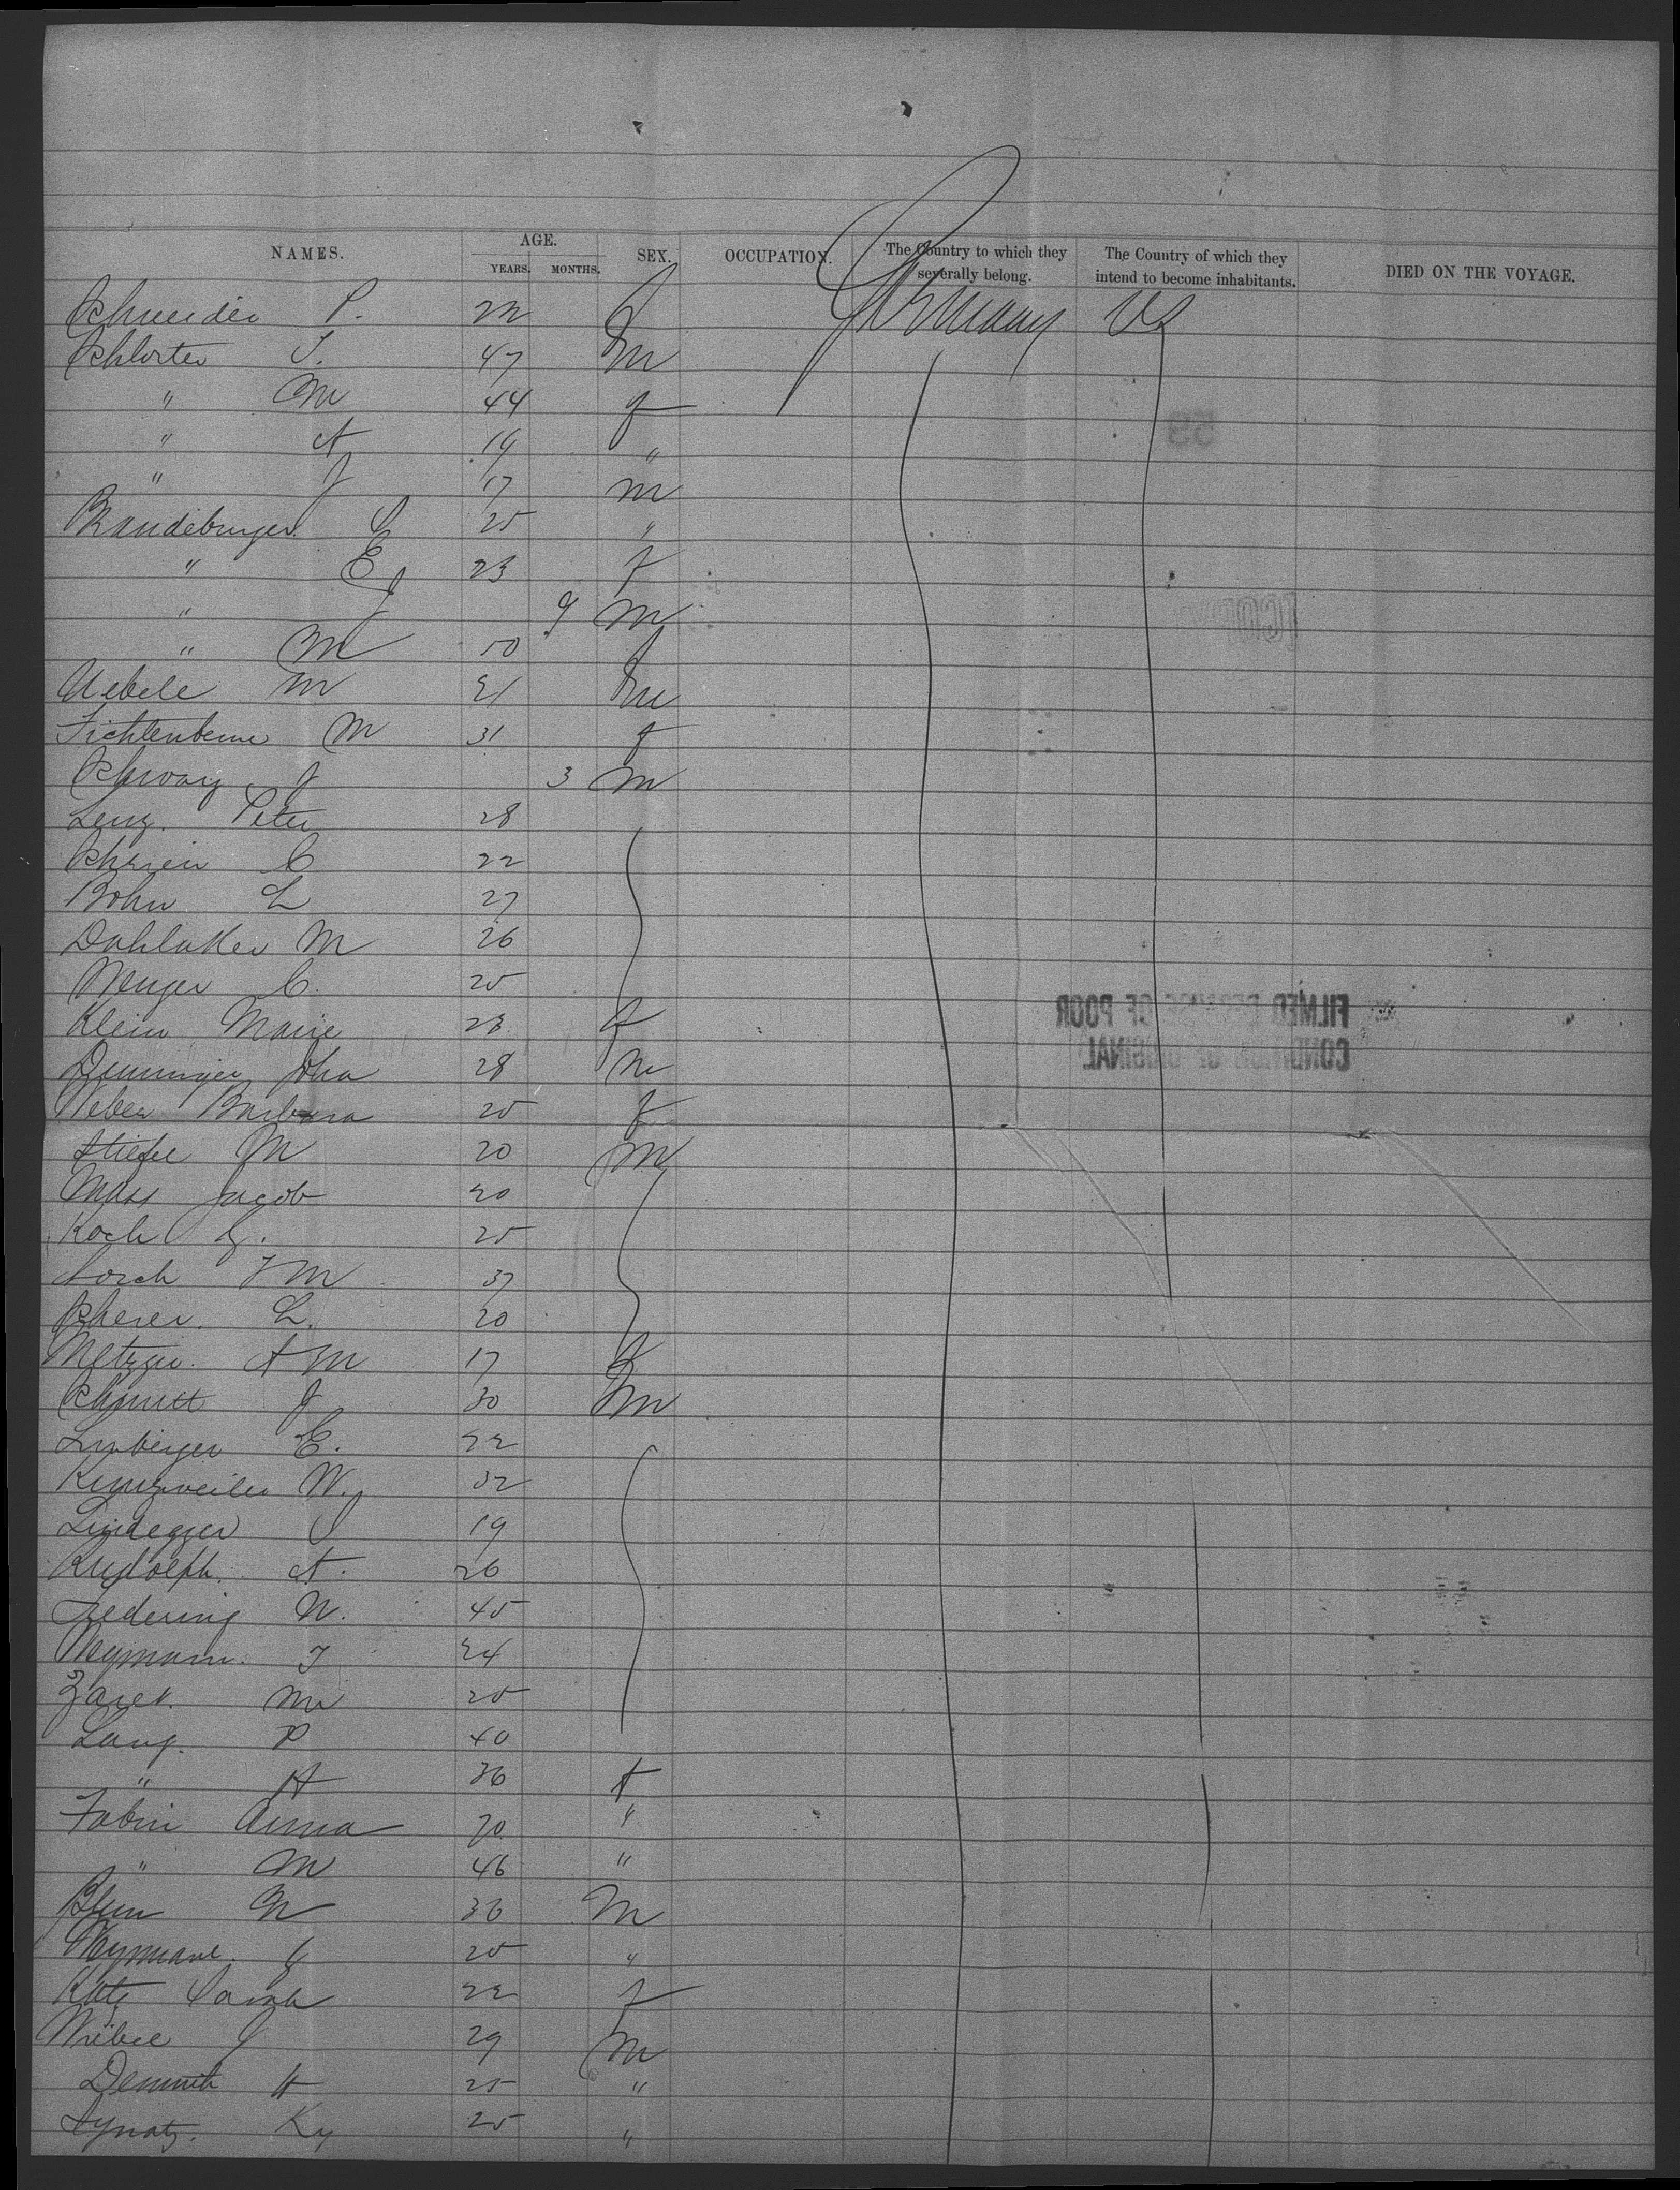 NAMES. AGE. YEARS. MONTHS. SEX. OCCUPATION. The Country to which they severally belong. The Country of which they intend to become inhabitants. DIED ON THE VOYAGE.
Schneider P. 22 f Germany US
Schlorter J. 47 m
" M 44 f
" A 19 "
" J 17 m
Brandeburger 25 "
" E 23 f
" J 9 m
" M 50 f
Uebele M 21 m
Fichtenbeme M 31 f
Schwarz J 3 m
Lenz. Peter 28
C 22
Bohn L 27
Dahlaker M 26
Menger C. 25
Klein Marie 23 f
Denninger John 28 m
Weber Barbara 25 f
Stiefel M 20 m
Mass Jacob 20
Koch G. 25
Lorch F M 37
Scherer. L. 20
Metzger. A M 17 f
Schmitt J 30 m
Lemberger E. 22
Kunzweiler W. 32
Lindegger J 19
Rudolph. A. 26
Federing W. 45
Weymann. J 24
M 25
Lang. P 40
" A 36 f
Fabin Anna 70 "
" M 46 "
Blum N 36 m
Weymann. J 25 "
Katz Sarah 22 f
J 29 m
Demuth H 25 "
Ky 25 "
59
[COPY]
FILMED BECAUSE OF POOR
CONDITION OF ORIGINAL